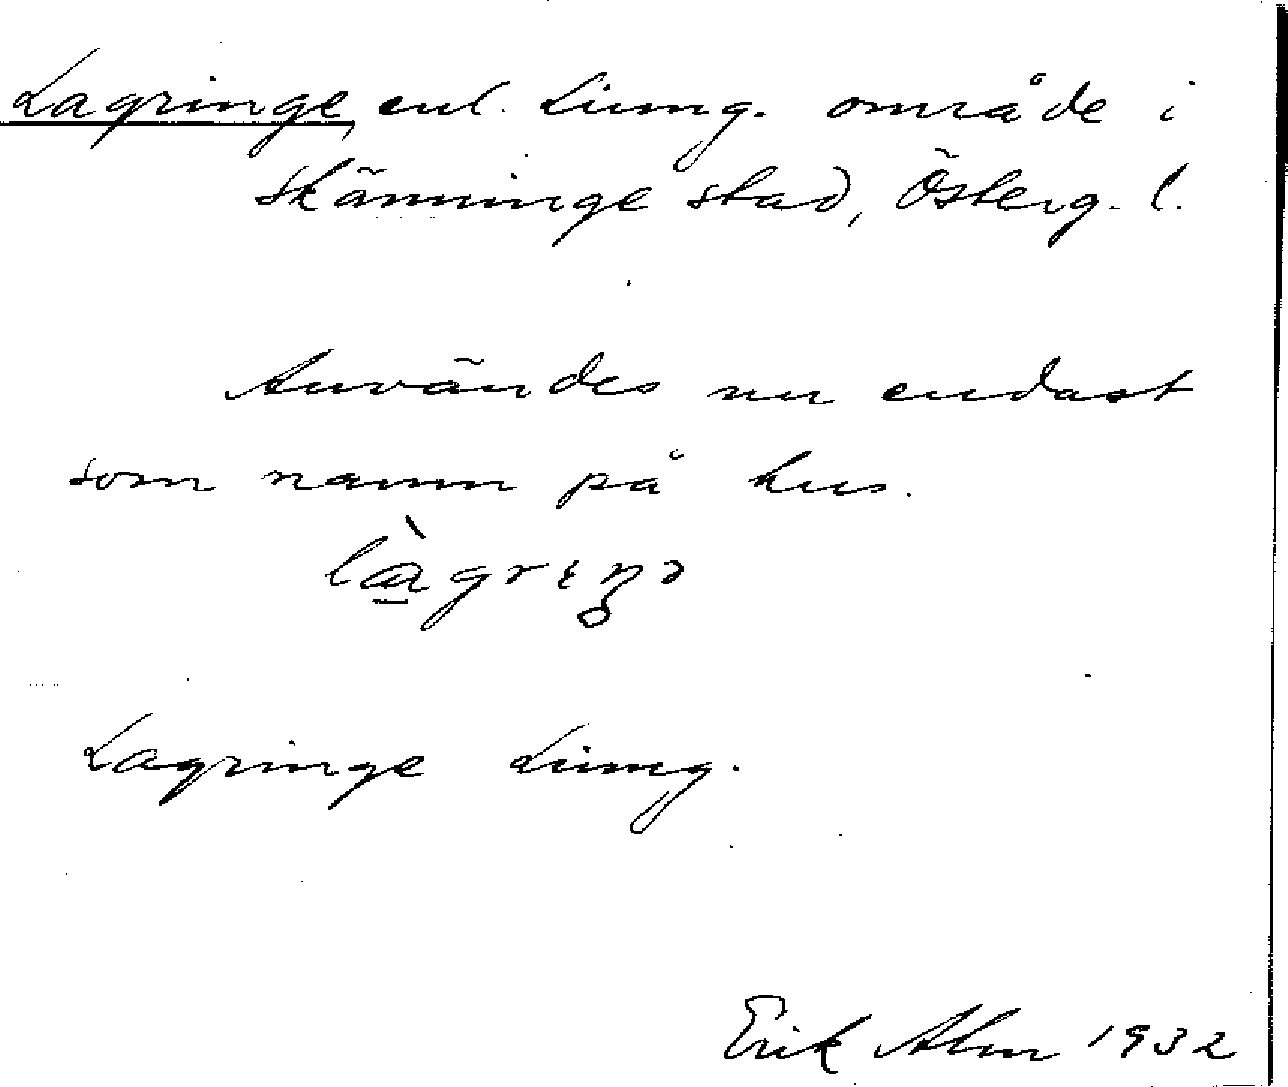 Lagringe, enl. Ljung. område i
Skänninge stad, Österg. l.
Användes nu endast
som namn på hus.
là̱grıŋə
Lagringe Ljung.
Erik Alm 1932